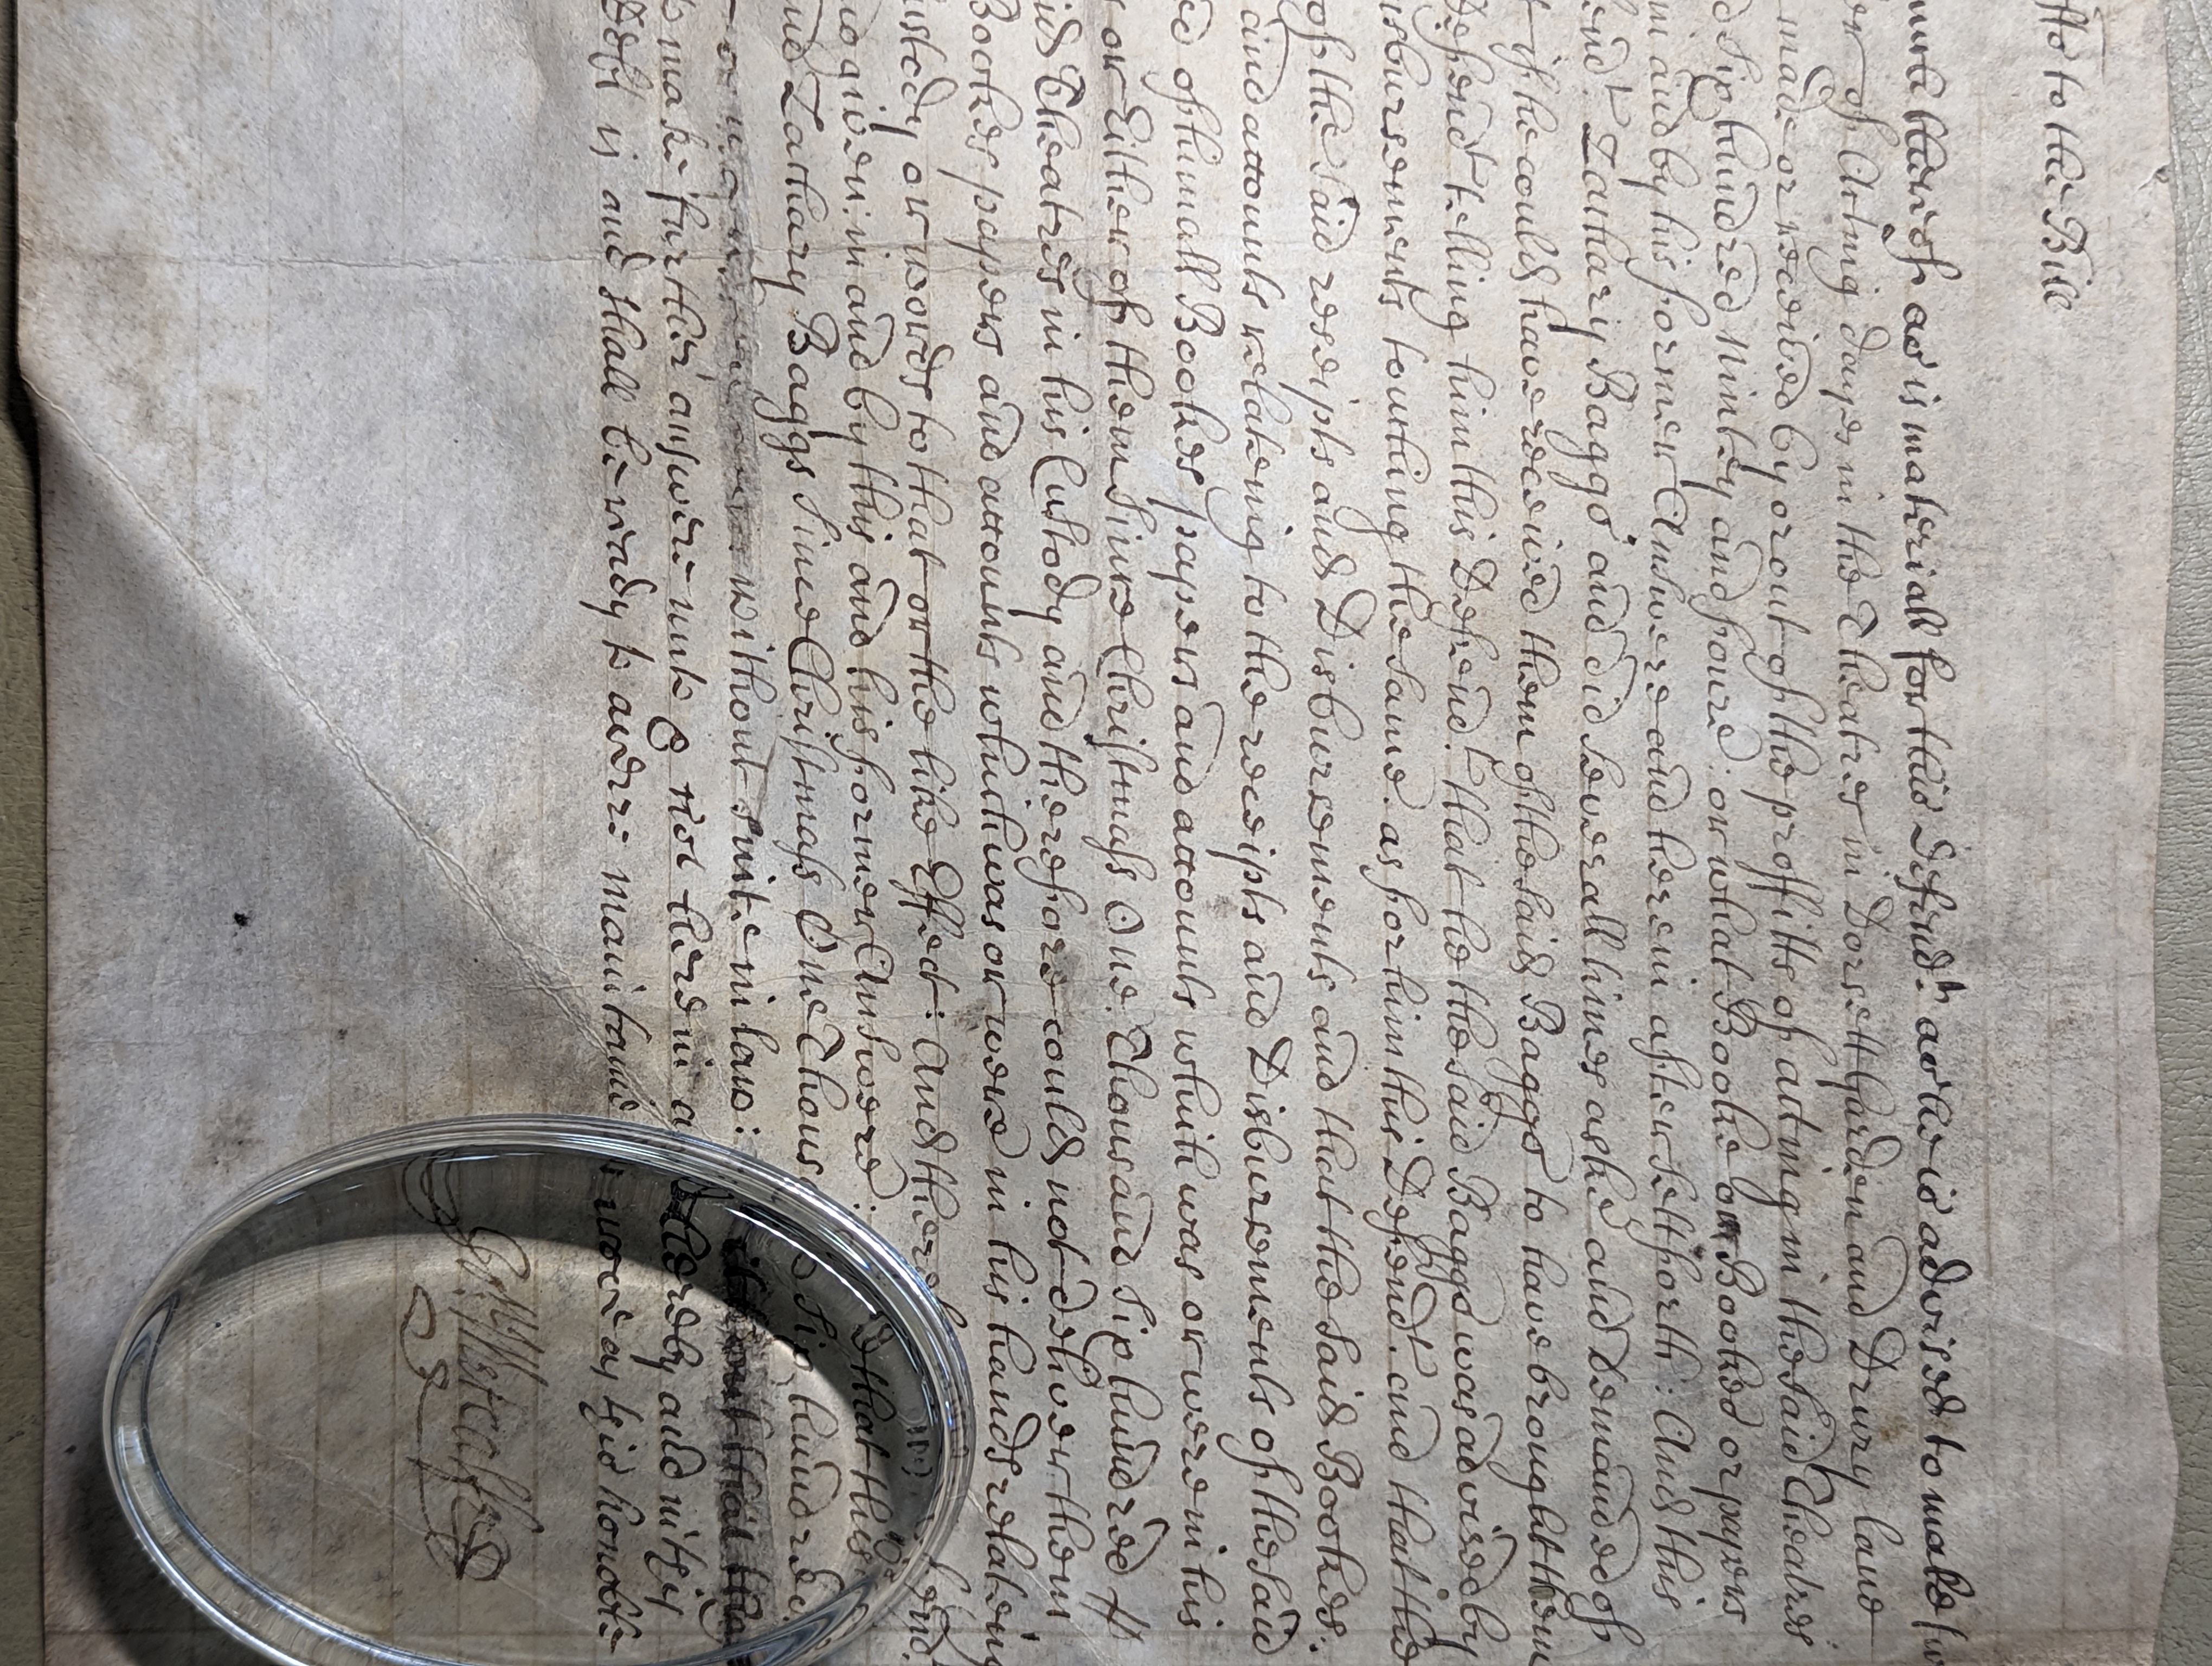 to the Bill
thereof as is materiall for this Defend.t as he is advised to make
of Acting dayes in the Theatres in Dorsett Garden and Drury lane
made or received by or out of the proffitts of acting in the said Theatres
Six hundred Ninety and foure: or what Booke or Bookes or papers
in and by his former Answere and herein after sett forth: And this
Zachary Baggs and did severall times aske and demaund of
if he could have received them of the said Baggs to have brought them
Defend.t telling him this Defend.t that he the said Baggs was advised by
isbursements touching the same. as for him this Defend.t and that the
of the said receipts and Disbursements and that the said Bookes.
and accounts relateing to the receipts and Disbursements of the said
of him all Bookes papers and accounts which was or were in his
or Either of them since Christmass One Thousand Six hundred
id Theatres in his Custody and therefore could not deliver them
Bookes papers and accounts which was or were in his hands relateing
ustody or words to that or the like Effect: And there
so given in and by this and his former Answere: that this
Zachary Baggs since Christmass One Thous Six hundred
without suite in law:
make further answere unto & not herein a thereby and
Deft is and shall be ready to averre maintaine